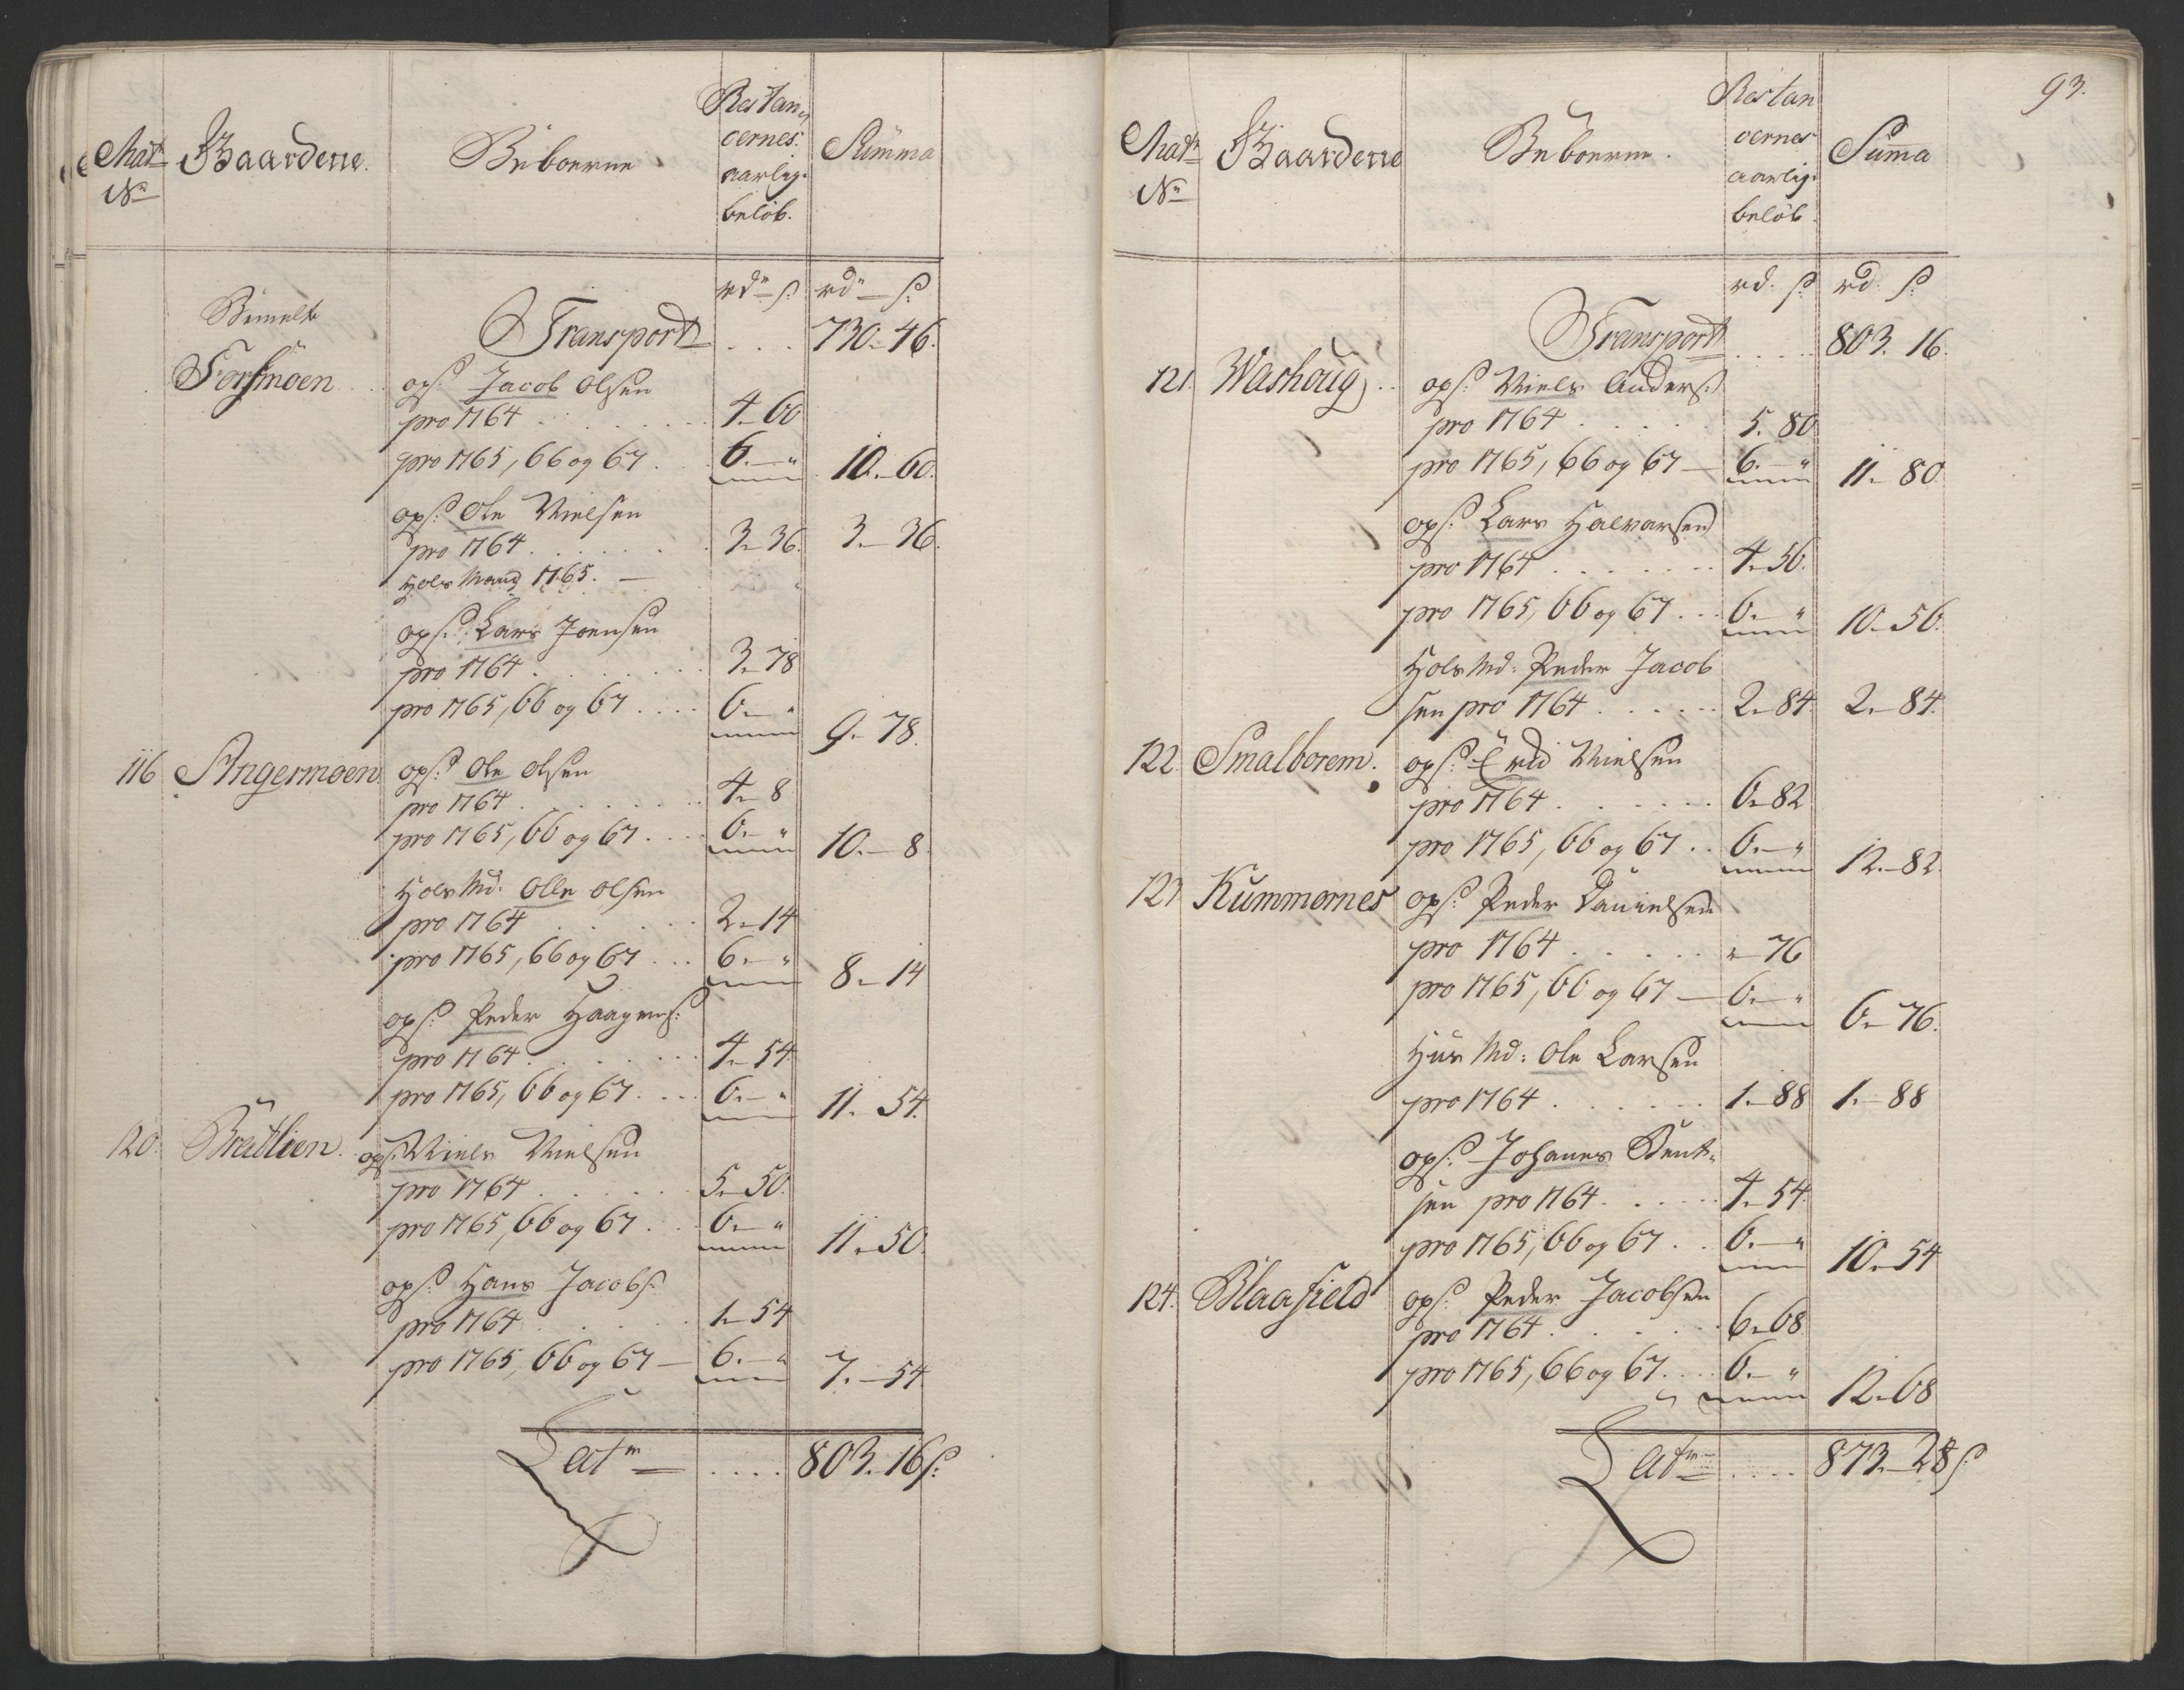 Matr No
Gaardene.
Beboerne
Restan,
cernes
aarlig:
beløb.
Summa
rdr ß: rdr ß:
Bemelte
Transport . . . 730. 46.
Forsmoen . . ops: Jacob Olsen
pro 1764 . . . 4. 60
pro 1765, 66 og 67 . . 6. " 10. 60.
ops: Ole Nielsen
pro 1764 . . . 3. 36. 3. 36.
Holv Mand 1765. —
ops: Lars Joensen
pro 1764 . . . 3. 78
pro 1765, 66 og 67 . . . 6. " 9. 78.
116 Angermoen ops: Ole Olsen
pro 1764 . . . 4. 8
pro 1765, 66 og 67 . . . 6. " 10. 8.
Holv Md: Olle Olsen
pro 1764 . . . 2. 14
pro 1765, 66 og 67 . . . 6. " 8. 14
ops: Peder Haagens:
pro 1764 . . . 4. 54
pro 1765, 66 og 67 . . . 6. " 11. 54.
120. Bratlien. ops: Niels Nielsen
pro 1764 . . . 5. 50.
pro 1765, 66 og 67 . . . 6. " 11. 50.
ops: Hans Jacobs:
pro 1764 . . . 1. 54
pro 1765, 66 og 67 — 6. " 7. 54.
Latr . . . . 803. 16 ß:
93.
Matr No
Gaardene
Beboerne.
Restan
cernes
aarlig:
beløb.
Summa
rd. ß: rd. ß:
Transport . . . . 803. 16.
121. Washoug . . ops: Niels Anders:
pro 1764 . . . 5. 80
pro 1765, 66 og 67 — 6. " 11. 80
ops: Lars Halvarsen
pro 1764 . . . 4. 56.
pro 1765, 66 og 67 . . . 6. " 10. 56.
Holv Md: Peder Jacob
sen pro 1764 . . . 2. 84. 2. 84.
122. Smalborem. ops: Nielsen
pro 1764 . . . 6. 82
pro 1765, 66 og 67 . . 6. " 12. 82.
123 Kummernes ops: Peder Danielsen
pro 1764 . . . " 76
pro 1765, 66 og 67 — 6. " 6. 76.
Huus Md: Ole Larsen
pro 1764 . . . 1. 88 1. 88
ops: Johanes Bent-
sen pro 1764 . . . 4. 54.
pro 1765, 66 og 67 . . 6. " 10. 54
124. Blaafield ops: Peder Jacobsen
pro 1764 . . . 6. 68
pro 1765, 66 og 67 . . . 6. " 12. 68
Latr . . . . 873. 28 ß